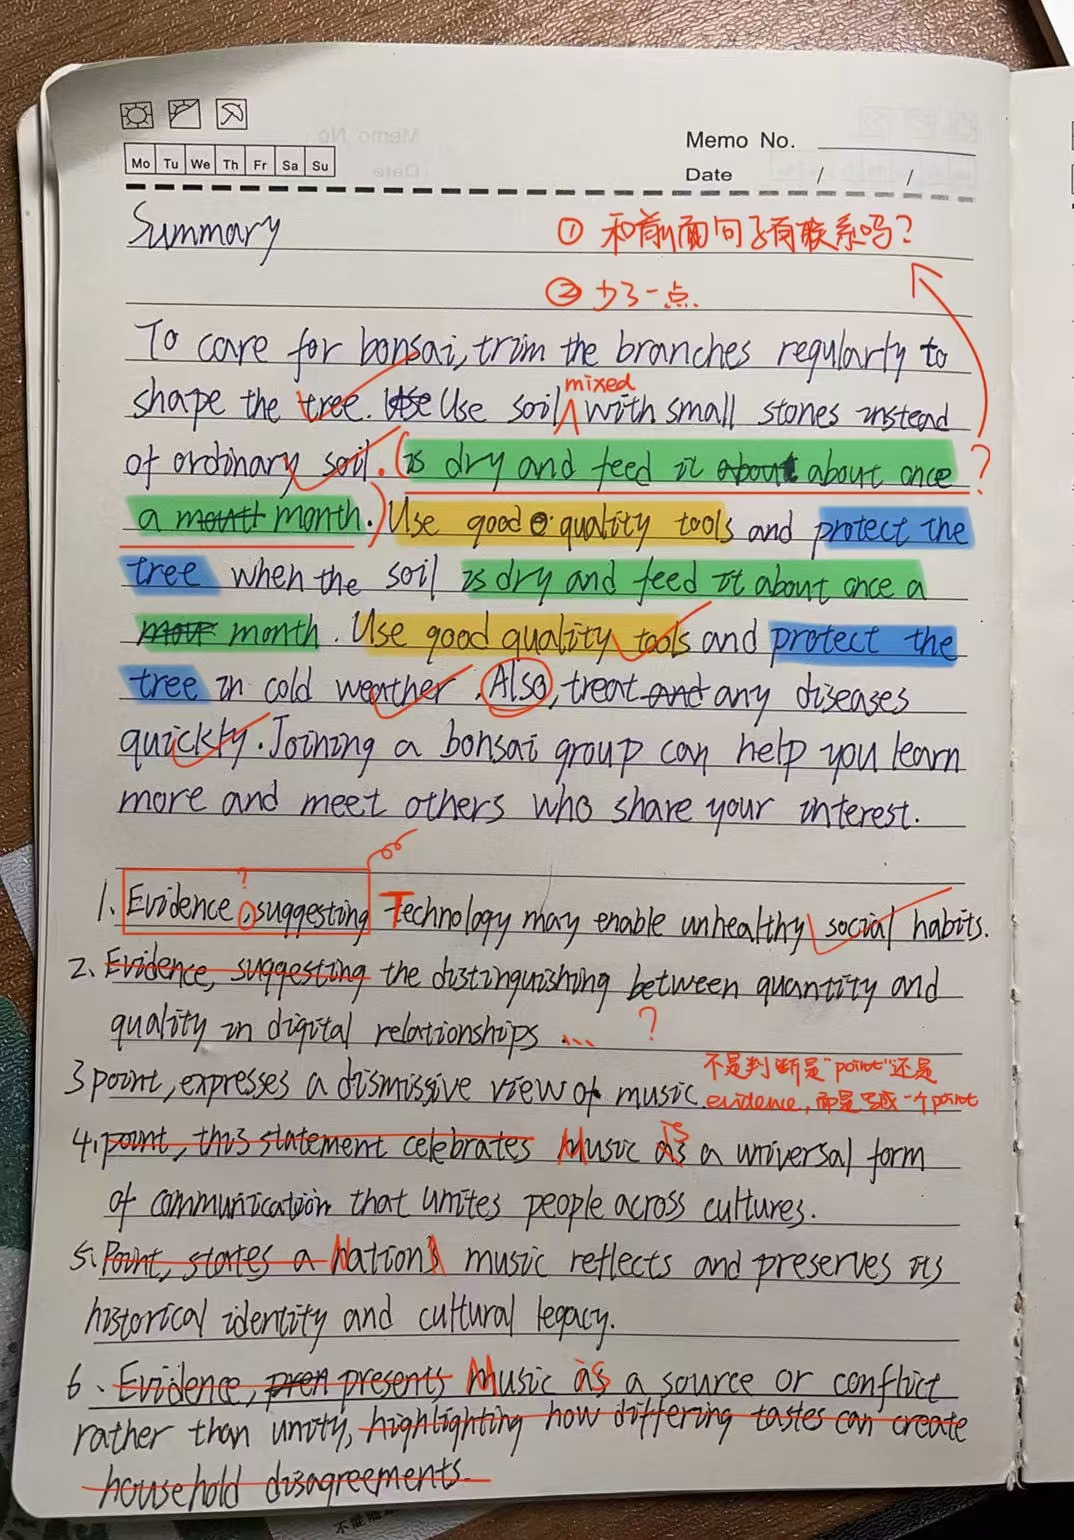 Memo No.
Mo Tu We Th Fr Sa Su
Date / /
Summary
① 和前面句子有联系吗?
② 少了一点
To care for bonsai, trim the branches regularly to
mixed
shape the tree. Use Use soil with small stones instead
of ordinary soil. (is dry and feed it about about once ?
a mouth month.) Use good quality tools and protect the
tree when the soil is dry and feed it about once a
mouth month. Use good quality tools and protect the
tree in cold weather. Also, treat and any diseases
quickly. Joining a bonsai group can help you learn
more and meet others who share your interest.
?
1、Evidence, suggesting Technology may enable unhealthy social habits.
2、Evidence, suggesting the distinguishing between quantity and
quality in digital relationships ... ?
不是判断是"point"还是
3 point, expresses a dismissive view of music.
evidence, 而是写成一个point
4、point, this statement celebrates Music is a universal form
of communication that unites people across cultures.
5、Point, states a Nation's music reflects and preserves its
historical identity and cultural legacy.
6、Evidence, pren presents Music as a source or conflict
rather than unity, highlighting how differing tastes can create
household disagreements.